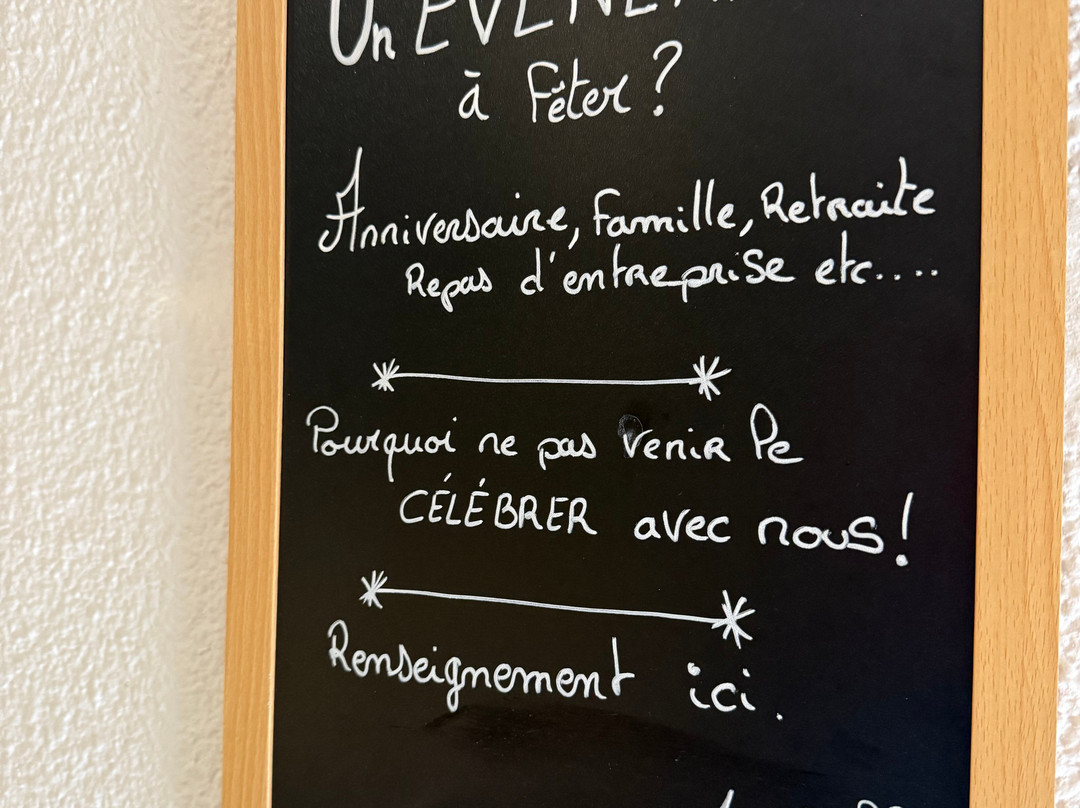 Un ÉVÉNEM
à fêter ?
Anniversaire, famille, Retraite
Repas d'entreprise etc....
Pourquoi ne pas venir le
CÉLÉBRER avec nous !
Renseignement ici.